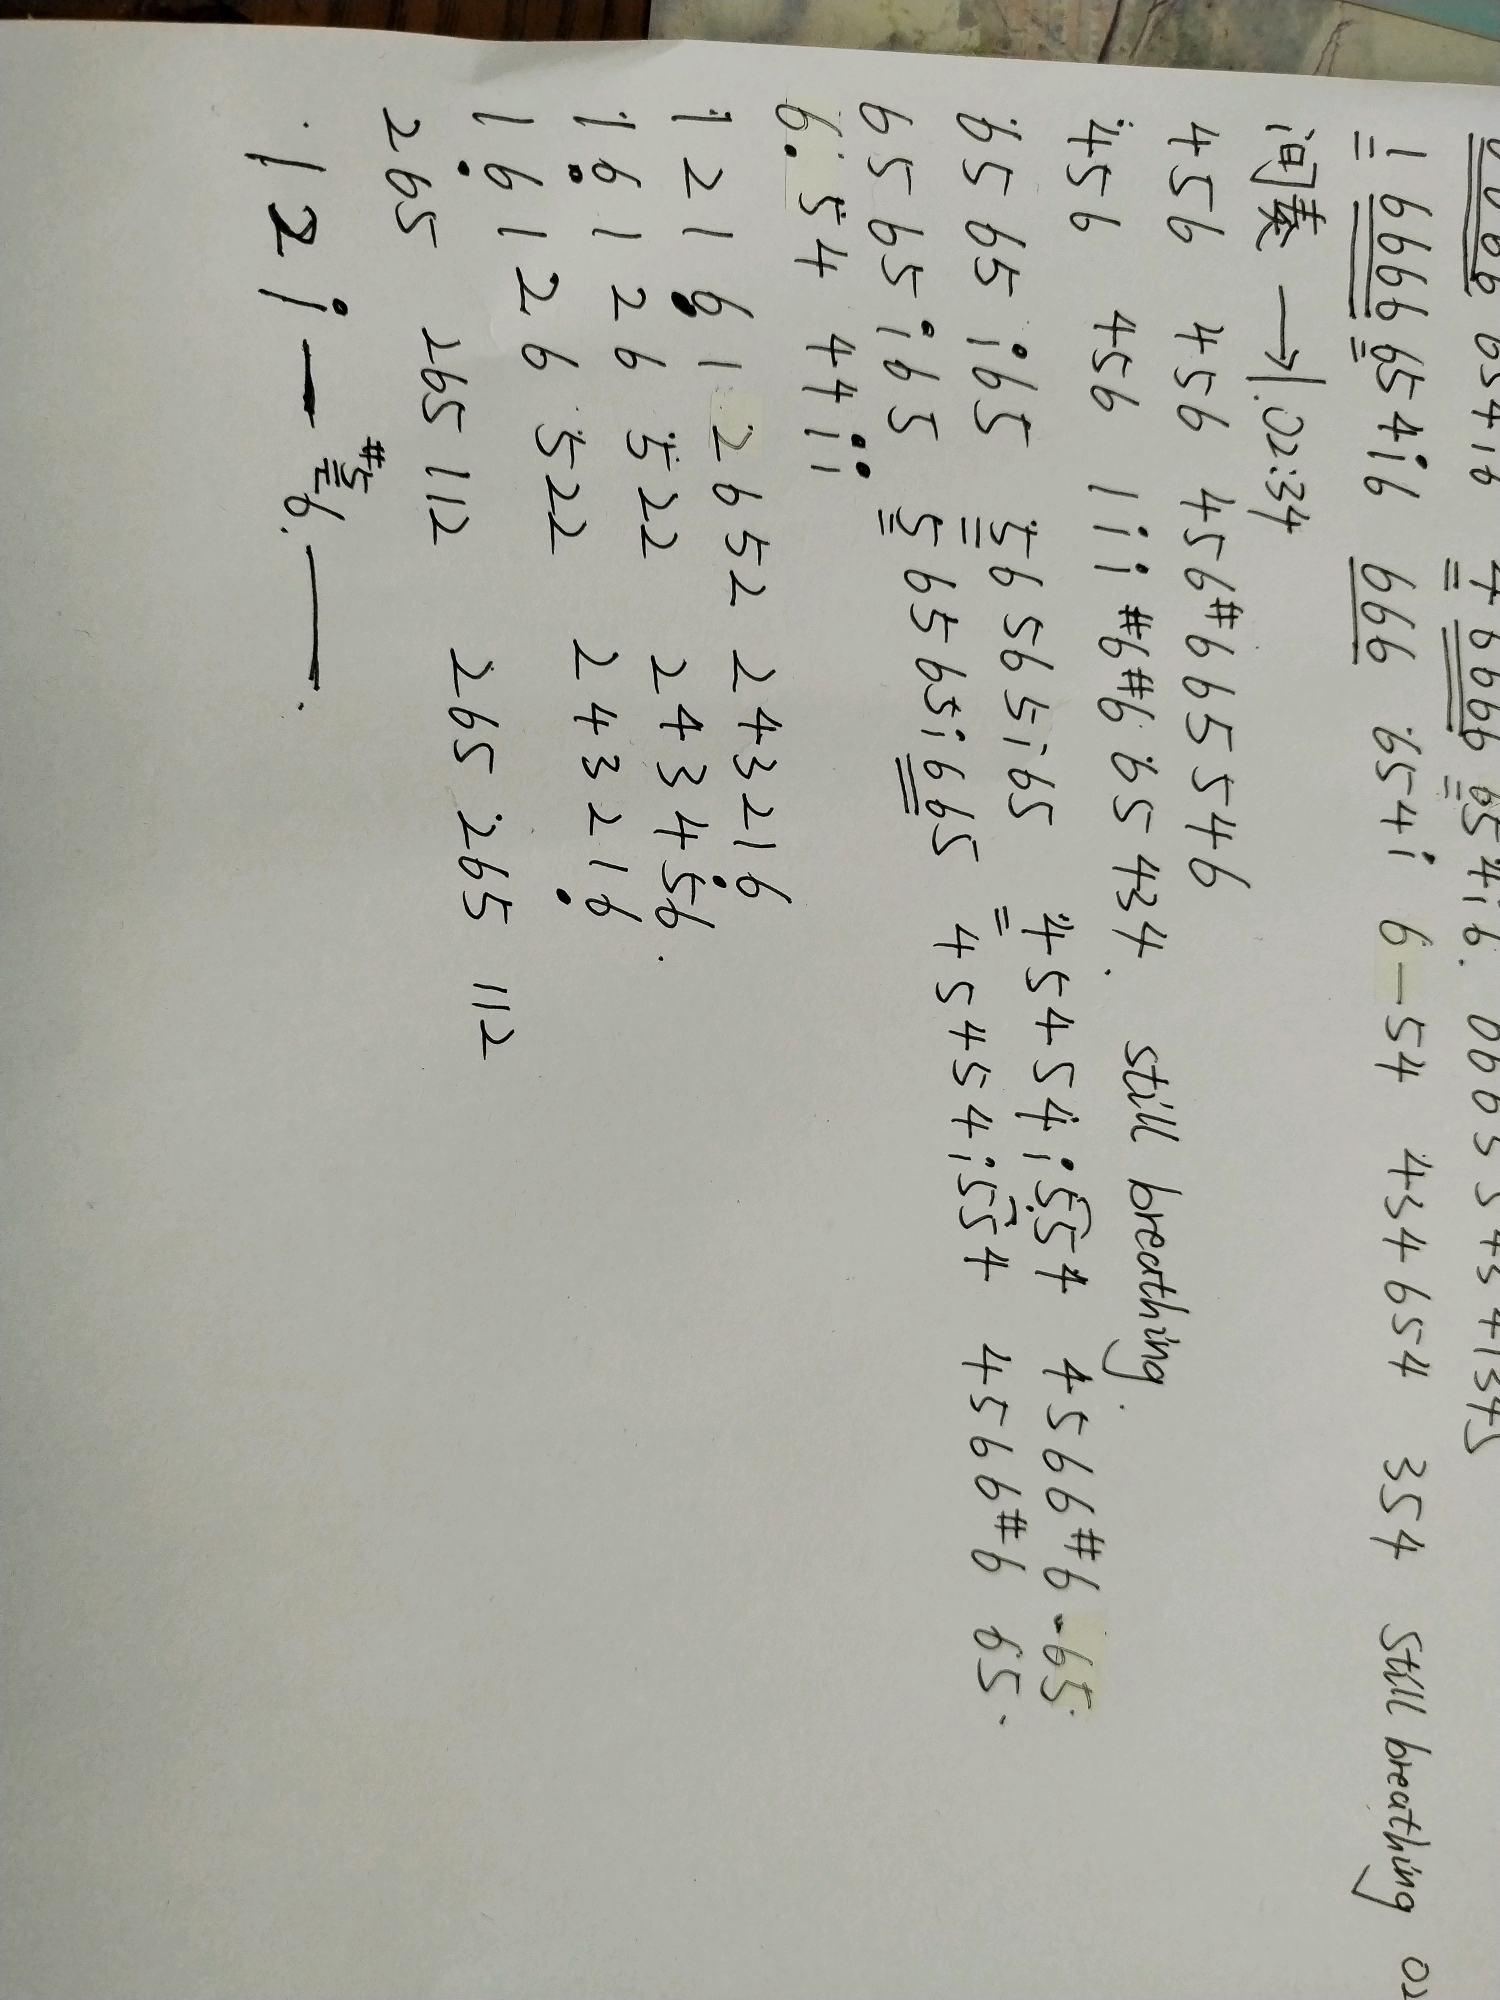 6666 65416 46666 6541̇6. 0665 54541345
1 6666 6541̇6 666 6541̇ 6—54 434 654 354 Still breathing 02
间奏 → 1.02:34
456 456 456#665546
456 456 11̇1̇#6#665434. still breathing.
65 65 1̇65 565651̇65 454541̇554 4566#6-65.
65651̇65 565651̇665 454541̇554 4566#6 65.
6. 54 441̇1̇
1 2 1 6̣ 1 2652 243216̣
16̣126 522 243456.
16̣126 522 243216̣
265 265 112 265 265 112
. 1 2 1̇ — #56. —— .